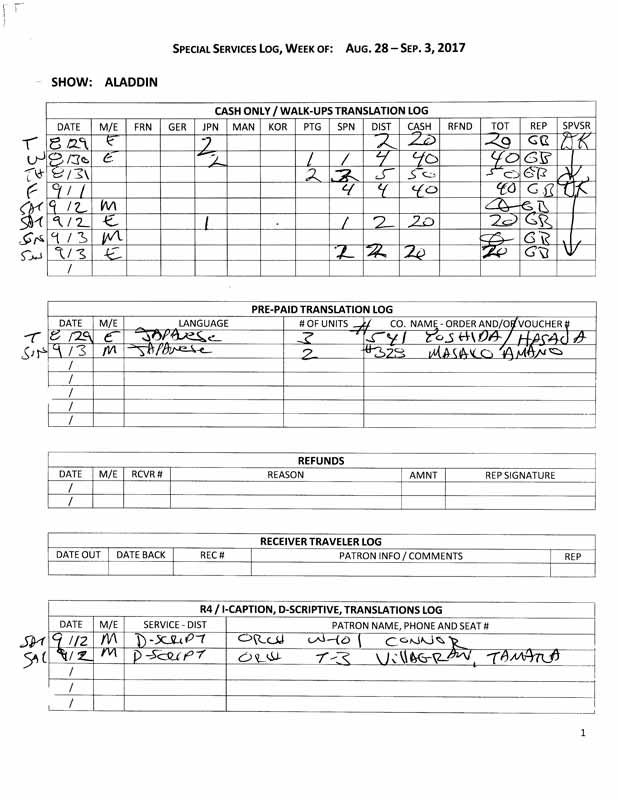 SPECIAL SERVICES LOG, WEEK OF: AUG. 28 – SEP. 3, 2017
SHOW: ALADDIN
CASH ONLY / WALK-UPS TRANSLATION LOG
DATE M/E FRN GER JPN MAN KOR PTG SPN DIST CASH RFND TOT REP SPVSR
T 8/29 E 2 2 20 20 GB
W 8/30 E 2 1 1 4 40 40 GB
TH 8/31 2 3 5 50 50 GB
F 9/1 4 4 40 40 GB
SAT 9/2 M GB
SAT 9/2 E 1 1 2 20 20 GB
SUN 9/3 M GB
SUN 9/3 E 2 2 20 20 GB
/
PRE-PAID TRANSLATION LOG
DATE M/E LANGUAGE # OF UNITS # CO. NAME - ORDER AND/OR VOUCHER #
T 8/29 E JAPANESE 3 541 YOSHIDA / HASADA
SUN 9/3 M JAPANESE 2 #329 MASAKO AMANO
/
/
/
/
/
REFUNDS
DATE M/E RCVR # REASON AMNT REP SIGNATURE
/
/
RECEIVER TRAVELER LOG
DATE OUT DATE BACK REC # PATRON INFO / COMMENTS REP
R4 / I-CAPTION, D-SCRIPTIVE, TRANSLATIONS LOG
DATE M/E SERVICE - DIST PATRON NAME, PHONE AND SEAT #
SAT 9/2 M D-SCRIPT ORCH W-101 CONNOR
SAT 9/2 M D-SCRIPT ORCH T-3 VILLAGRAN, TAMARA
/
/
/
1